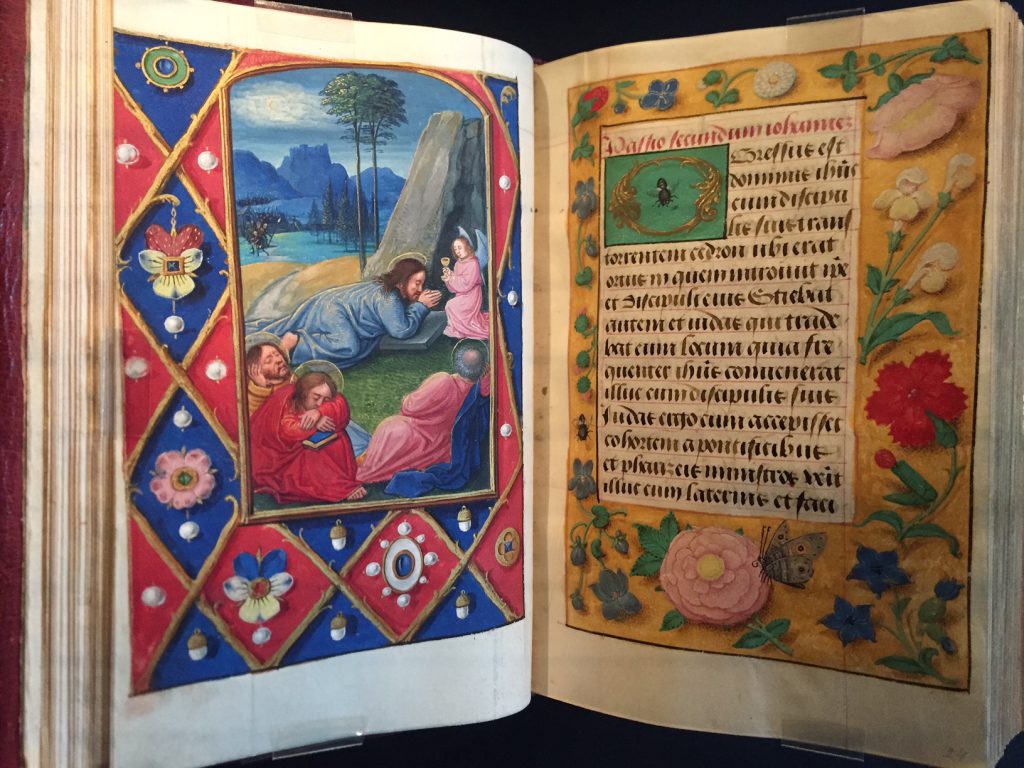 Passio secundum iohannez
Egressus est
dominus ihūs
cum discipu
lis suis trans
torrentem cedron ubi erat
ortus in quem introivit ip̄e
et discipuli eius Sciebat
autem et iudas qui trade
bat eum locum quia fre
quenter ihūs convenerat
illuc cum discipulis suis
Iudas ergo cum accepisset
cohortem a pontificibus
et phariseis ministros vēit
illuc cum laternis et faci